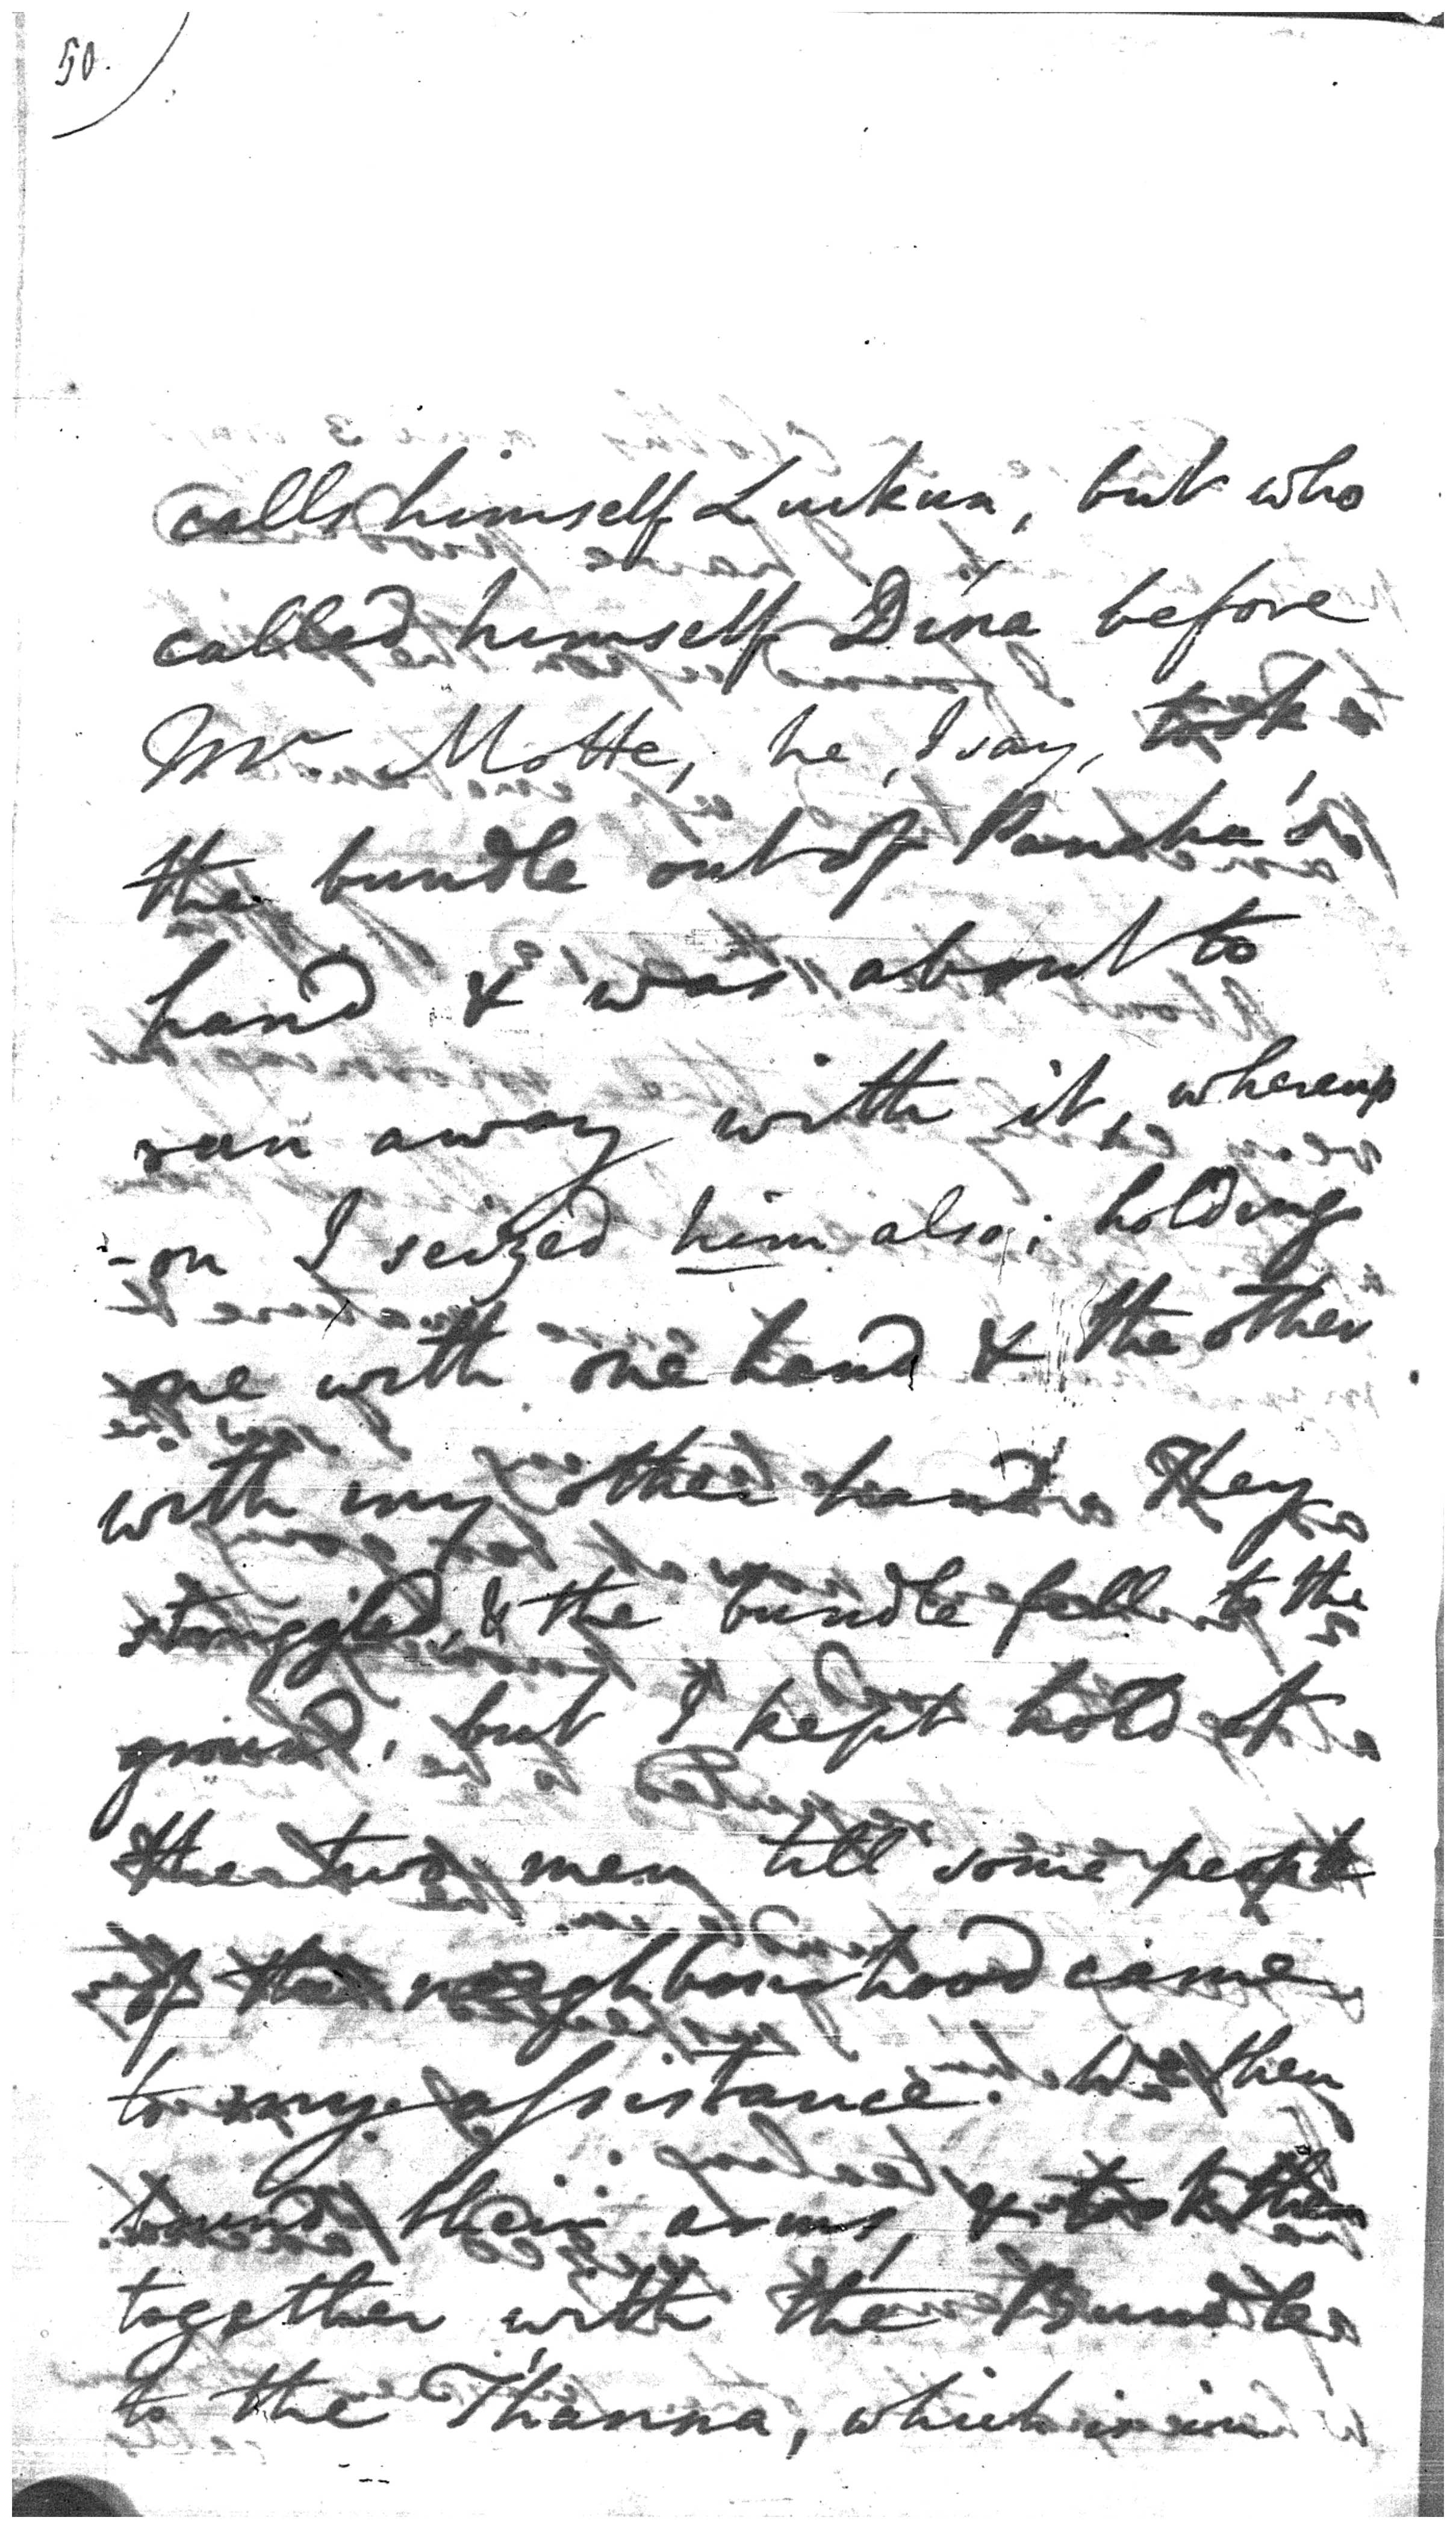 50.
calls himself Luckun, but who
called himself Dina before
Mr Motte, he, I say, took
the bundle out of Panchu's
hand & was about to
run away with it, whereup
-on I seized him also; holding
one with one hand & the other
with my other hand. They
struggled, & the bundle fell to the
ground, but I kept hold of
the two men till some people
of the neighbourhood came
to my assistance. We then
bound their arms, & took them
together with the Bundle
to the Thanna, which is in